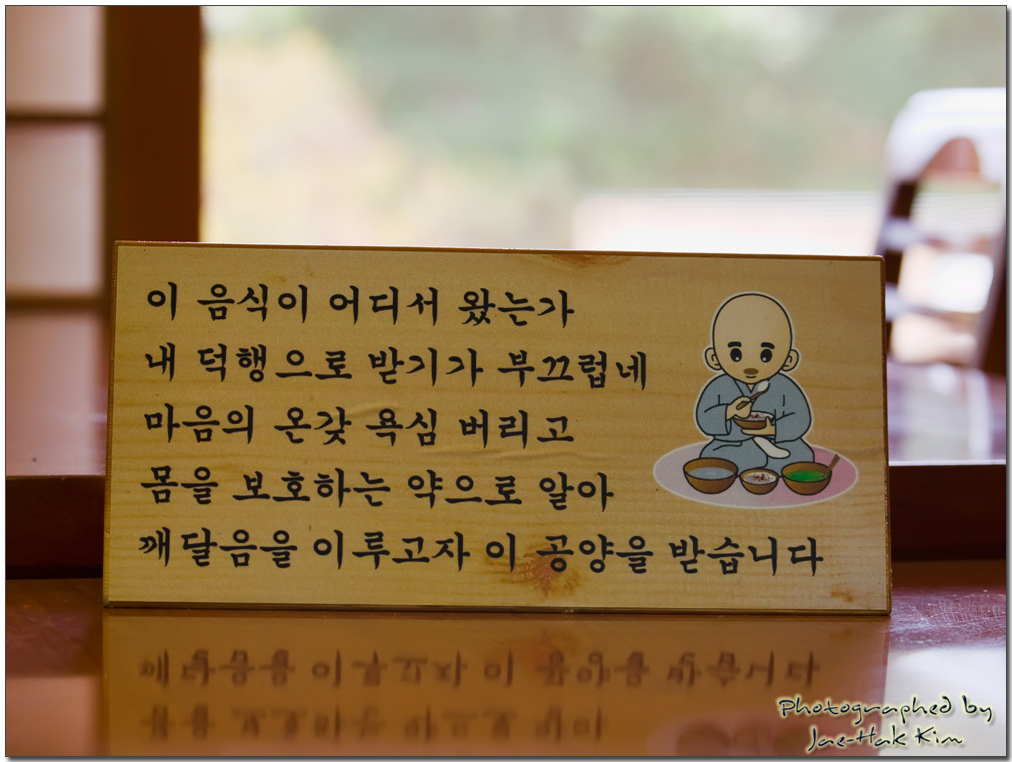 이 음식이 어디서 왔는가
내 덕행으로 받기가 부끄럽네
마음의 온갖 욕심 버리고
몸을 보호하는 약으로 알아
깨달음을 이루고자 이 공양을 받습니다
Photographed by
Jae-Hak Kim